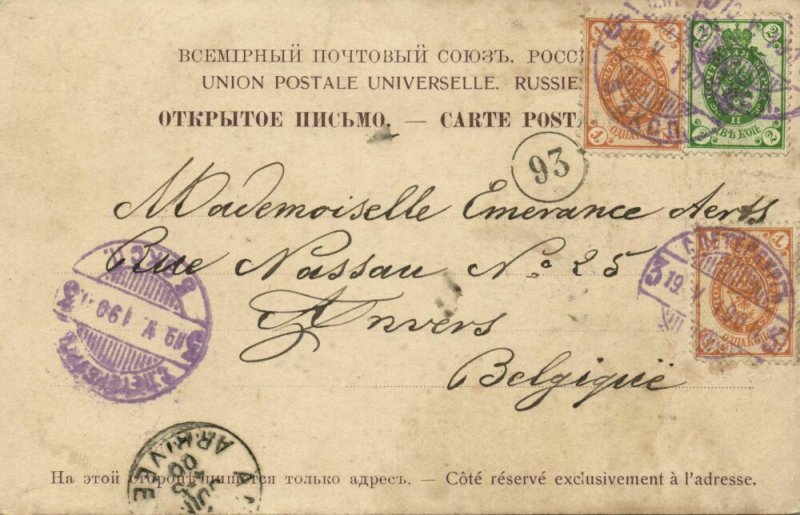 ВСЕМІРНЫЙ ПОЧТОВЫЙ СОЮЗЪ. РОСС
UNION POSTALE UNIVERSELLE. RUSSIE
ОТКРЫТОЕ ПИСЬМО. — CARTE POSTA
93
Mademoiselle Emerance Aerts
Rue Nassau No 25
Anvers
Belgique
С.ПЕТЕРБУРГЪ
3
19 V
ARRIVEE
На этой сторонѣ пишется только адресъ. — Côté réservé exclusivement à l'adresse.